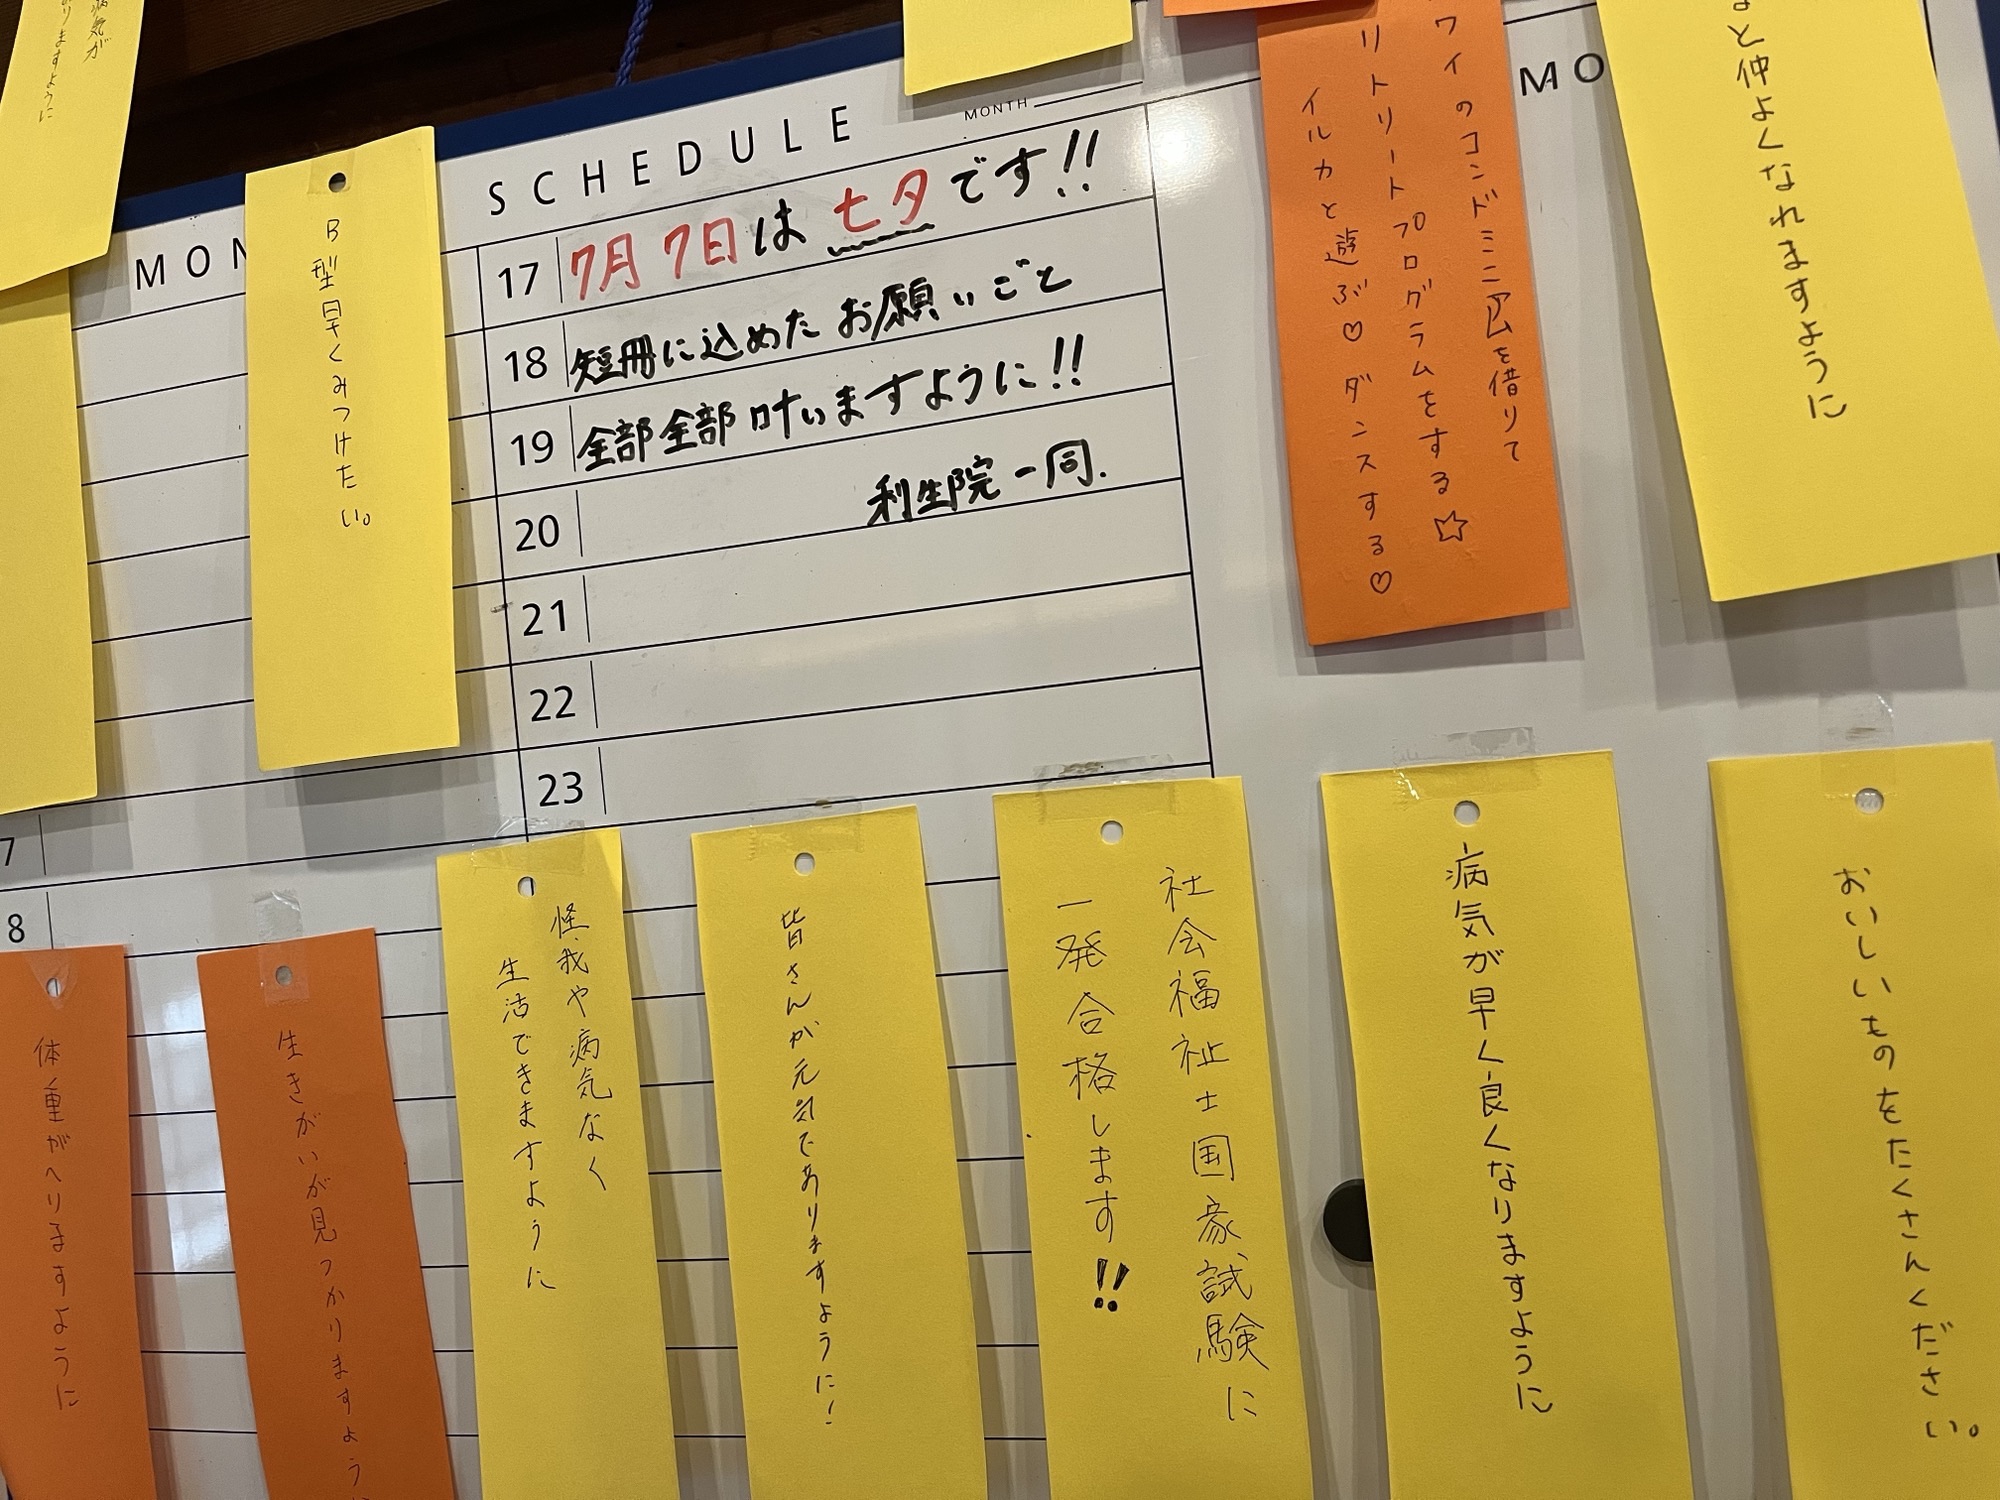 病気が
りますように
B型早くみつけたい。
MON
SCHEDULE
MONTH
17
7月7日は七夕です!!
18
短冊に込めたお願いごと
19
全部全部叶いますように!!
20
利生院一同.
21
22
23
7
8
ワイのコンドミニアムを借りて
リトリートプログラムをする☆
イルカと遊ぶ♡ ダンスする♡
MO
と仲よくなれますように
体重がへりますように
生きがいが見つかりますよう
怪我や病気なく
生活できますように
皆さんが元気でありますように!
社会福祉士国家試験に
一発合格します!!
病気が早く良くなりますように
おいしいものをたくさんください。